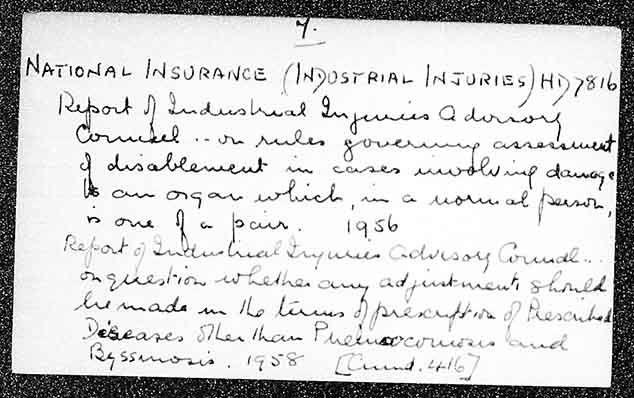 7.
NATIONAL INSURANCE (INDUSTRIAL INJURIES) HD7816
Report of Industrial Injuries Advisory
Council .. on rules governing assessment
of disablement in cases involving damage
to an organ which, in a normal person,
is one of a pair. 1956
Report of Industrial Injuries Advisory Council...
on question whether any adjustments should
be made in the terms of prescription of Prescribed
Diseases other than Pneumoconiosis and
Byssinosis. 1958 [Cmnd. 416]